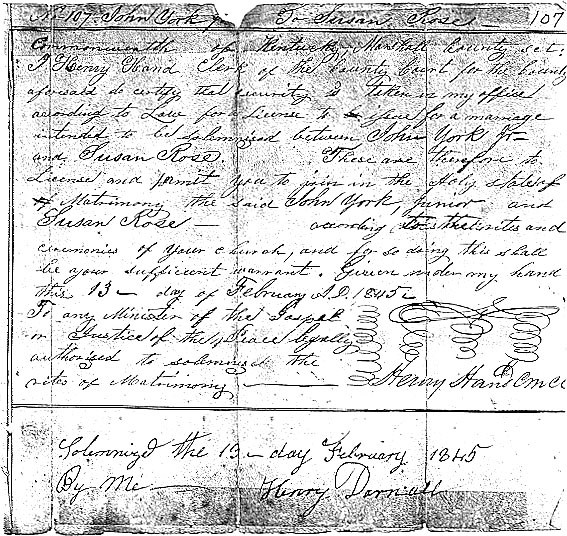 No 107 John York jr To Susan Rose — 107
Commonwealth of Kentucky, Marshall County sct:
I Henry Hand Clerk of the County Court for the County
aforesaid do certify that security is taken in my office
according to Law for a License to issue for a marriage
intended to be solemnized between John York Jr —
and Susan Rose. These are therefore to
License and permit you to join in the Holy state of
of Matrimony the said John York, junior and
Susan Rose — according to the rites and
ceremonies of your church, and for so doing this shall
be your sufficient warrant. Given under my hand
this 13 — day of February A.D. 1845
To any Minister of the Gospel
or Justice of the Peace legally
authorised to solemnize the
rites of Matrimony — Henry Hand CMCC
Solemnized the 13 — day February 1845
By Me — Henry Darnall